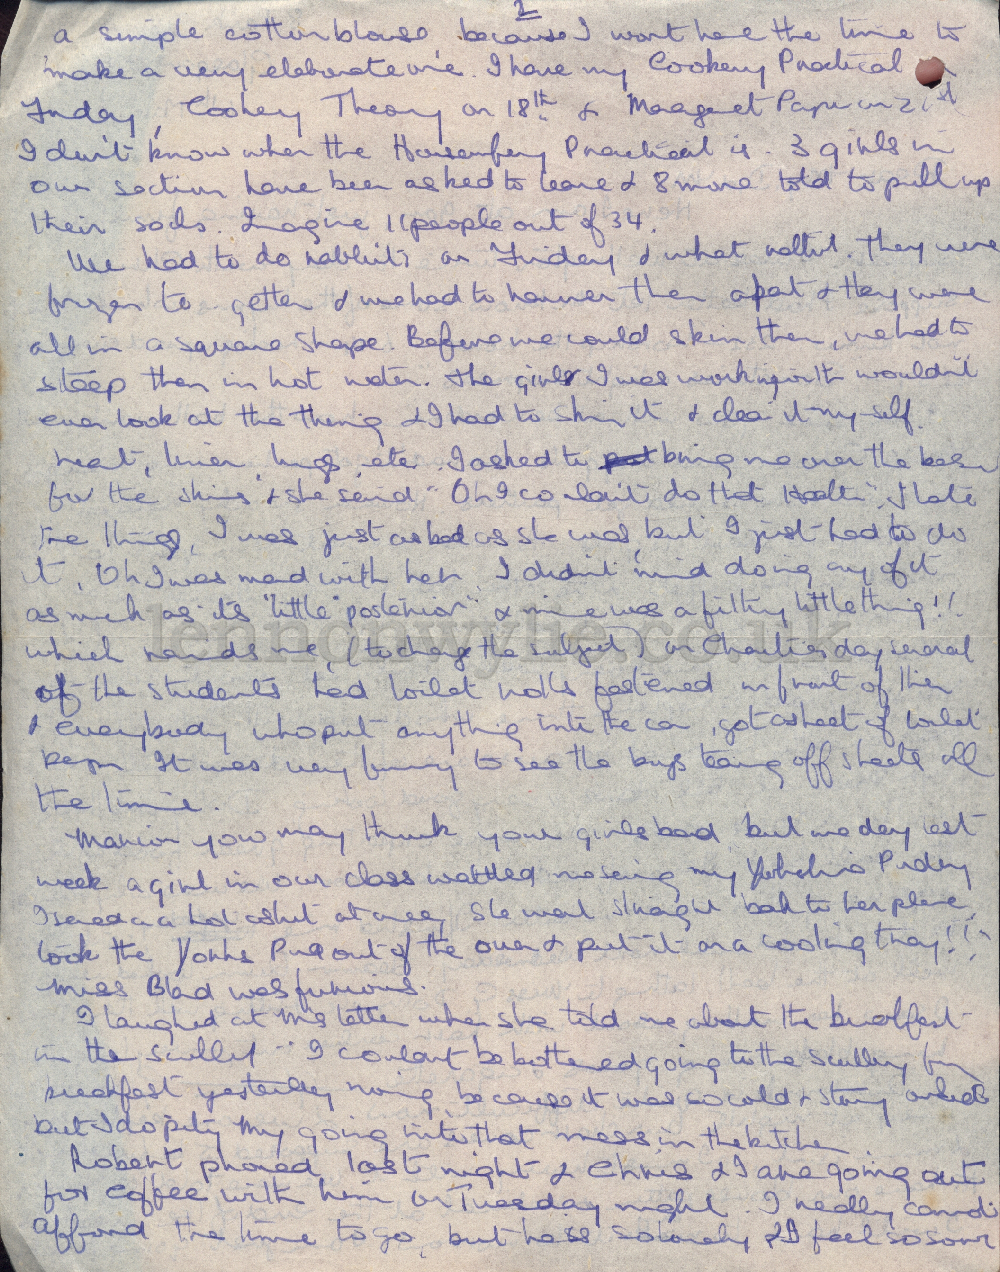 2
a simple cotton blouse, because I wont have the time to
make a very elaborate one. I have my Cookery Practical
Friday, Cookery Theory on 18th & Margaret Paper on 21st
I don't know when the Housewifery Practical is. 3 girls in
our section have been asked to leave & 8 more told to pull up
their socks. Imagine 11 people out of 34.
We had to do rabbits on Friday & what They were
frozen to getter & we had to hammer them apart & they were
all in a square shape. Before we could skin them, we had to
steep them in hot water. The girl I was working with wouldn't
even look at the thing & I had to skin it & clean it myself.
heart, liver, lungs, etc. I asked to bring me over the basin
for the skins & she said "Oh I couldn't do that Heather", I hate
the things, I was just as bad as she was, but I just had to do
it, Oh I was mad with her. I didn't mind doing any of it
as much as its "little posterior" & mine was a filthy little thing!!
which reminds me, (to change the subject) on Charities day several
of the students had toilet rolls fastened in front of them
& everybody who put anything into the can, got a sheet of toilet
paper It was very funny to see the boys tearing off sheets all
the time.
Marion you may think your girls bad but one day last
week a girl in our class my Yorkshire Pudding
a hot at She went straight back to her place,
took the Yorks Pud out of the oven & put it on a cooling tray!!!
Miss Blad was furious.
I laughed at M's letter when she told me about the breakfast
in the scullery - I couldn't be bothered going to the scullery for
breakfast yesterday morning because it was so cold & stay in bed
but I do pity My going into that mess in the kitchen
Robert phoned last night & Chris & I are going out
for coffee with him on Tuesday night. I really cannot
afford the time to go, but he is so lonely & I feel so sorry
lennonwylie.co.uk